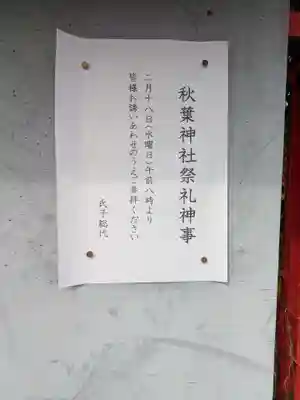 秋葉神社祭礼神事
二月十八日(水曜日)午前八時より
皆様お誘いあわせのうえご参拝ください
氏子総代